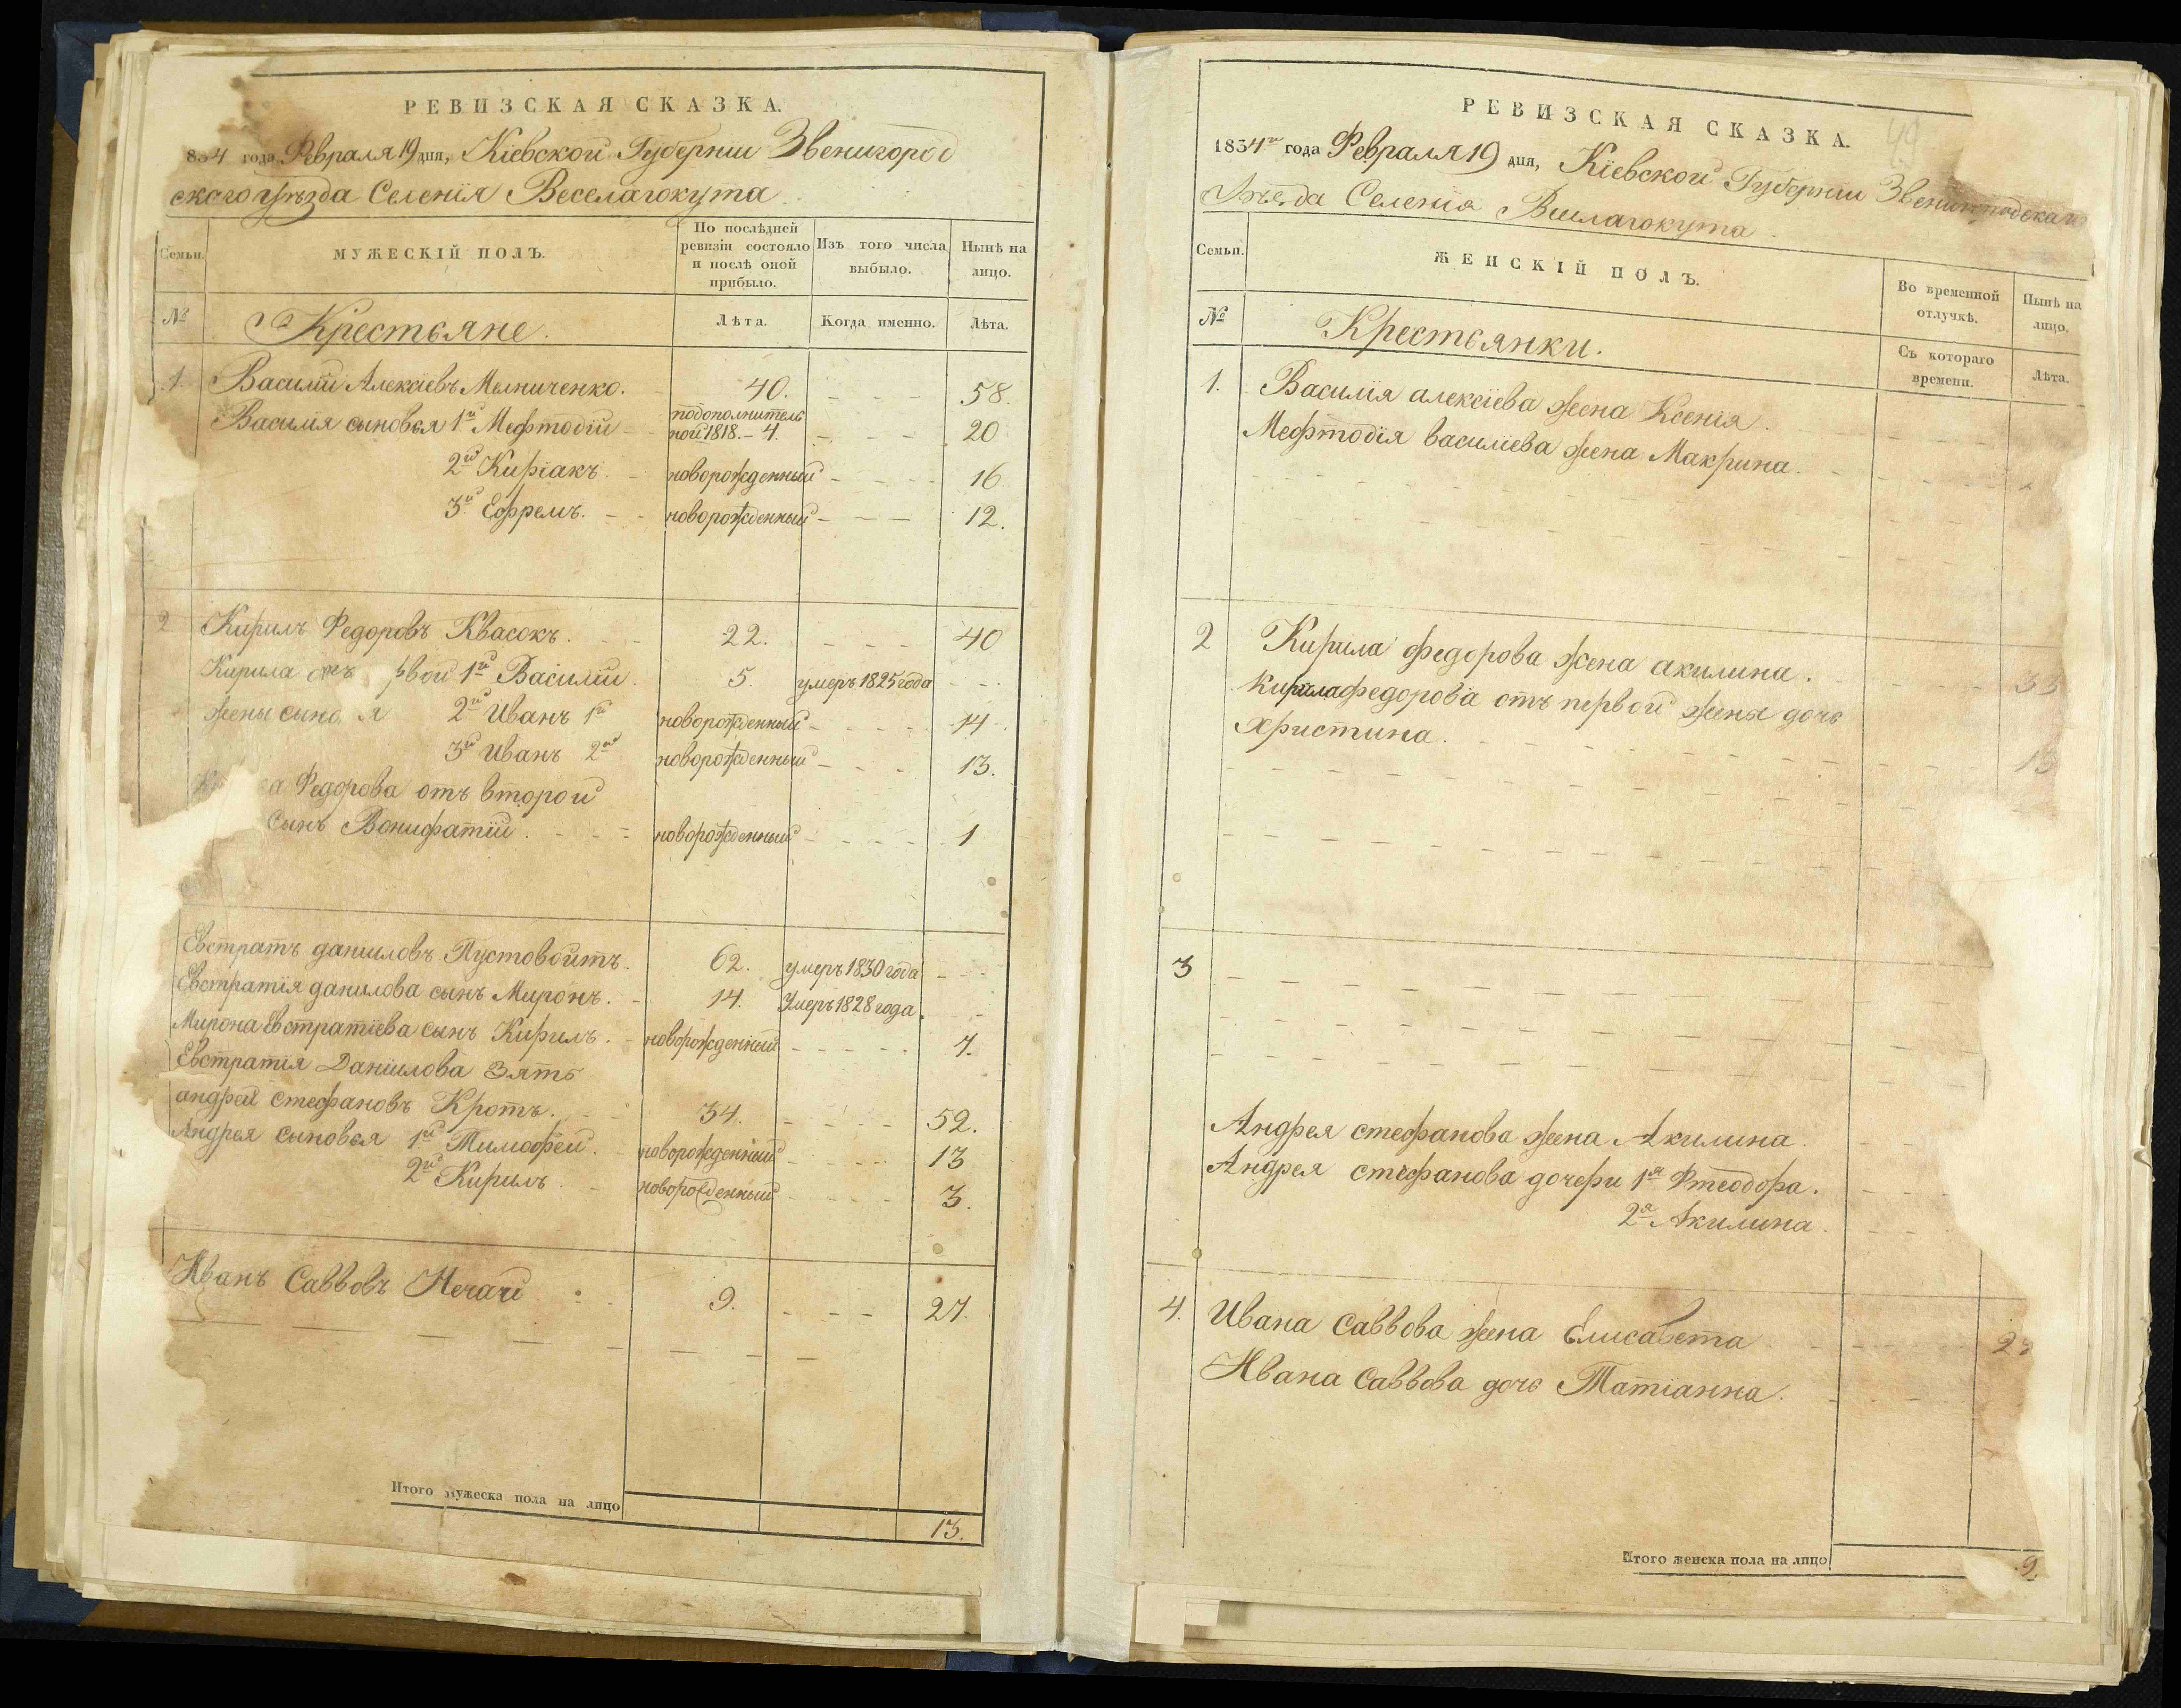 РЕВИЗСКАЯ СКАЗКА.
834 года Февраля 19 дня, Кіевской Губерніи Звенигород
ского уѣзда Селенія Веселагокута
Семьи.
МУЖЕСКІЙ ПОЛЪ.
По послѣдней ревизіи состояло и послѣ оной прибыло.
Изъ того числа выбыло.
Нынѣ на лицо.
№
Крестьяне.
Лѣта.
Когда именно.
Лѣта.
1. Василій Алексіевъ Мельниченко. 40. 58.
Василія сыновья 1й Мефтодій подополнительной 1818. - 4. 20
2й Киріакъ. новорожденный 16
3й Ефремъ. новорожденный 12.
2 Кирилъ Федоровъ Квасокъ. 22. 40
Кирила отъ рвой 1й Василій. 5. умеръ 1825 года
жены сыно я 2й Иванъ 1й новорожденный 14
3й Иванъ 2й новорожденный 13.
К а Федорова отъ второй
сынъ Вонифатій новорожденный 1
Евстратъ даниловъ Пустовойтъ. 62. умеръ 1830 года
Евстратія данилова сынъ Миронъ. 14. Умеръ 1828 года
Мирона Евстратіева сынъ Кирилъ. новорожденный 7.
Евстратія Данилова Зять
андрей стефановъ Кротъ. 34. 52.
Андрея сыновья 1й Тимофей. новорожденный 13
2й Кирилъ новорожденный 3.
Иванъ Саввовъ Нечай 9. 27.
Итого мужеска пола на лицо 13.
РЕВИЗСКАЯ СКАЗКА.
49
1834го года Февраля 19 дня, Кіевской Губерніи Звенигородскаго
Уѣзда Селенія Веселагокута
Семьи.
ЖЕНСКІЙ ПОЛЪ.
Во временной отлучкѣ.
Нынѣ на лицо.
№
Крестьянки.
Съ котораго времени.
Лѣта.
1. Василія алексіева жена Ксенія
Мефтодія василіева жена Макрина.
2 Кирила федорова жена акилина. 33
Кирила федорова отъ первой жены дочь
Христина. 13
3
Андрея стефанова жена Акилина
Андрея стефанова дочери 1я Фтеодора.
2я Акилина
4. Ивана Саввова жена Елисавета
Ивана Саввова дочь Татіанна.
Итого женска пола на лицо 9.